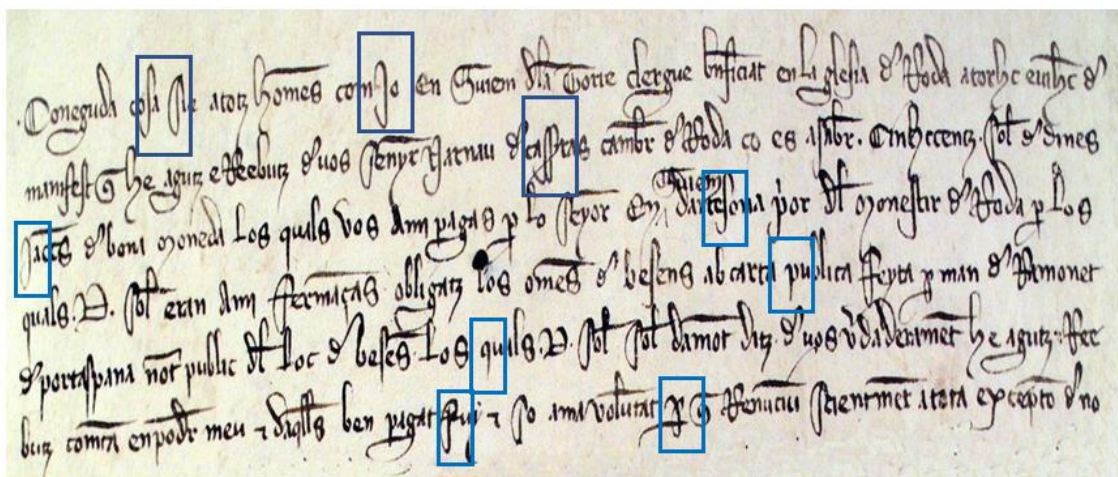 Coneguda cosa sie a totz homes com Jo en Guiem dla Torre clergue bnficiat en la glesia d Roda atorhc e uihc e d
manifest q he agutz e Reebutz d uos senyer Narnau d Casstas cambr d Roda ço es a sabr. Cinhccentz. sol d dines
Jacces d bona moneda Los quals vos Ami pagas p Lo senyor En Guiem dartesona prior dl monestir d Roda p Los
quals. D. sol eran Ami fermaças obligatz Los omes d besens ab carta publica feyta p man d Ramonet
d portaspana not public dl Loc d beses. Los quals. D. sol sol damot ditz. d uos vdaderamet he agutz. Ree
butz comta en podr meu ⁊ daqlls ben pagat Fuy ⁊ so a ma volutat p q Renuciu scientmet a tota excepto d no